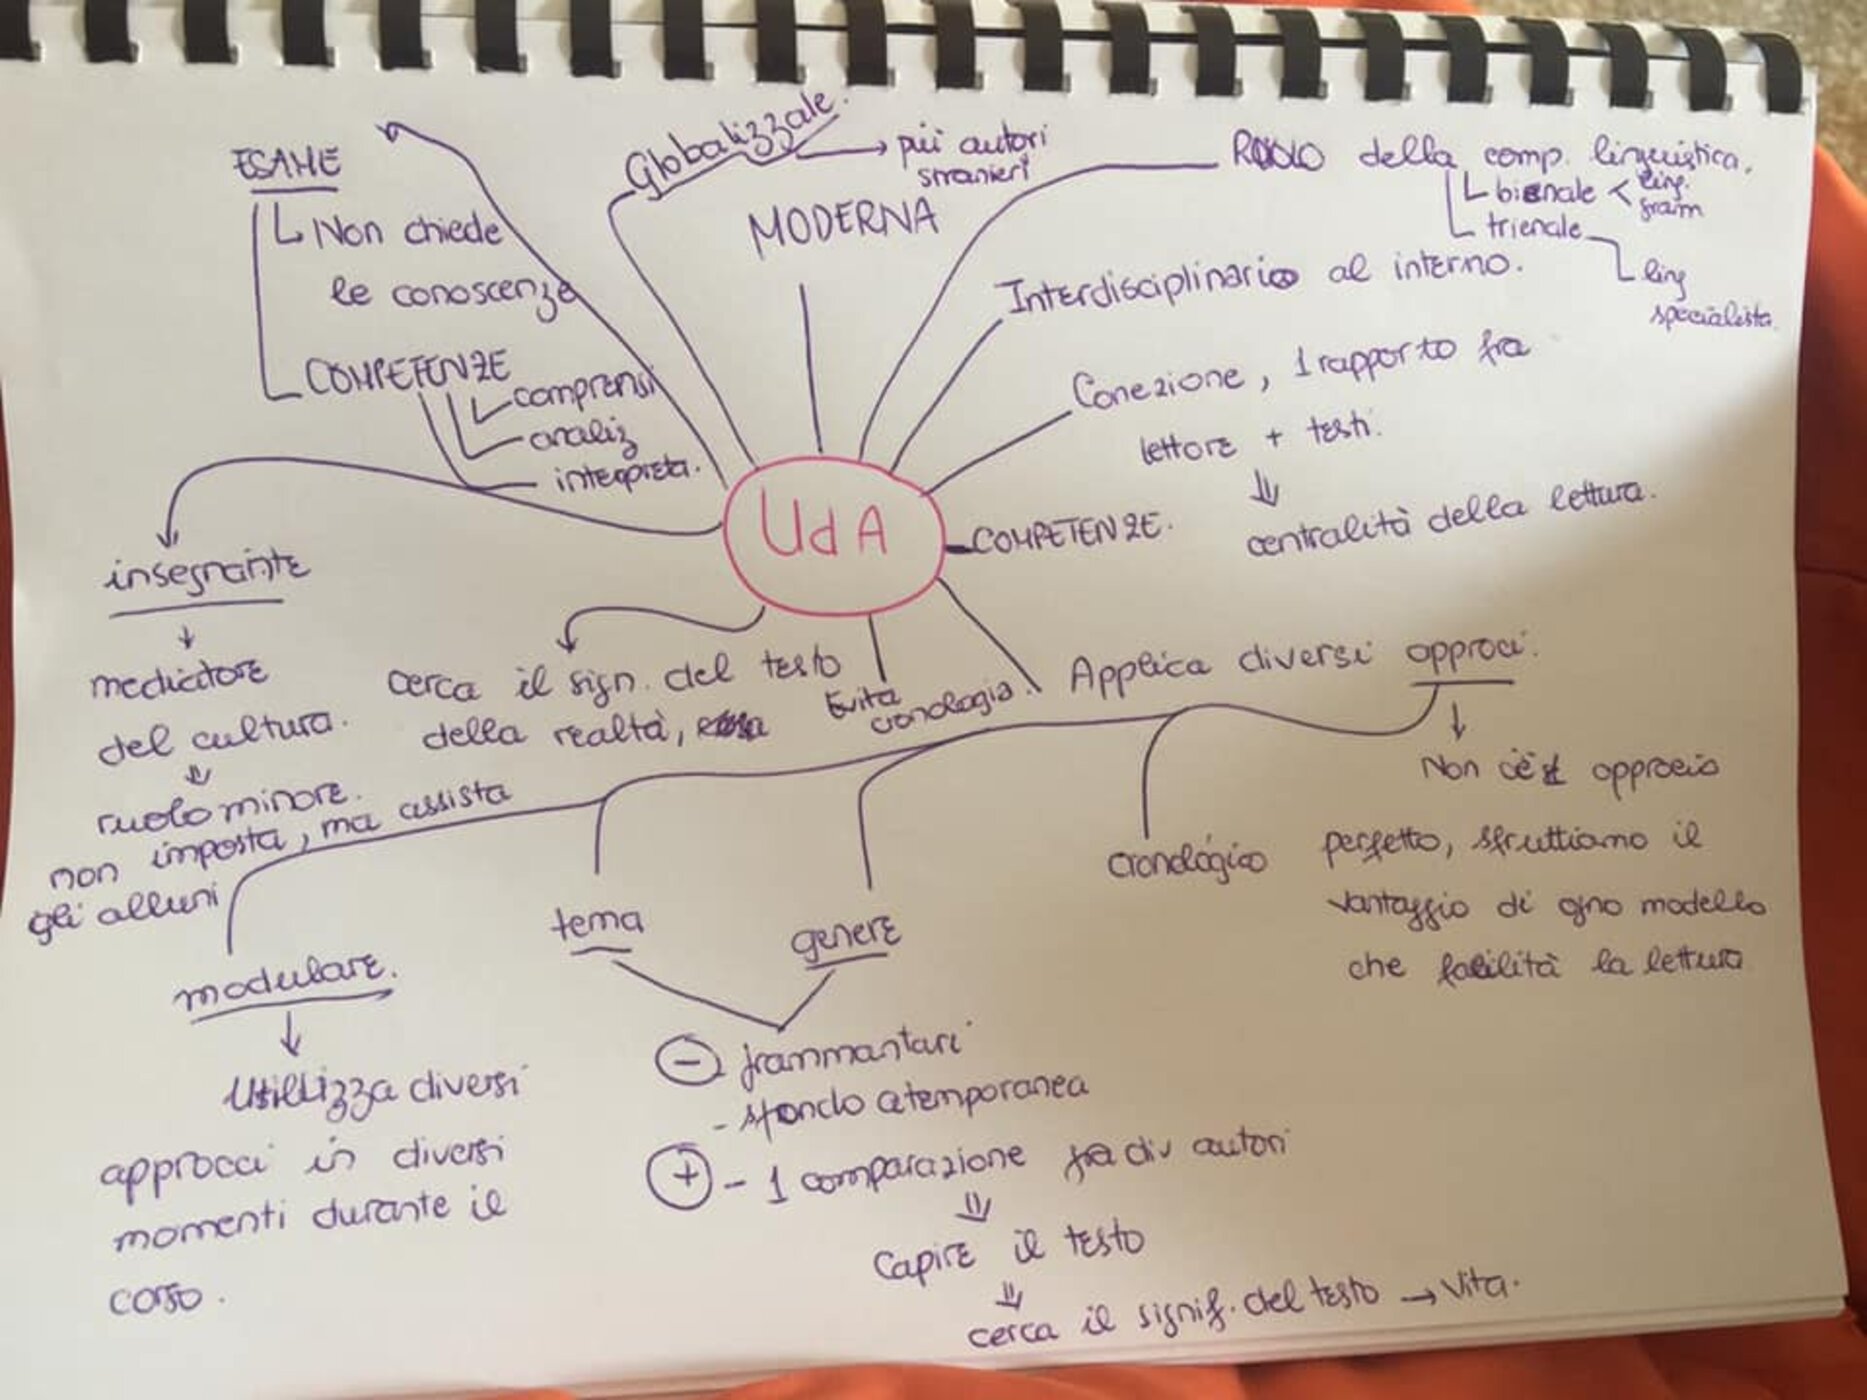 ESAME
Non chiede
le conoscenze
COMPETENZE
comprensi
analiz
interpreta.
Globalizzale.
più autori
stranieri
MODERNA
Ruolo della comp. linguistica.
bienale < ling.
gram
trienale
ling
specialista.
Interdisciplinario al interno.
Conezione, 1 rapporto fra
lettore + testi.
⇓
centralità della lettura.
UdA
COMPETENZE.
insegnante
mediatore
del cultura.
ruolo minore.
non imposta, ma assista
gli alluni
cerca il sign. del testo
della realtà,
Evita
cronologia.
Applica diversi approci.
Non c'è approcio
perfetto, sfruttiamo il
vantaggio di ogno modello
che facilità la lettura
cronológico
tema
genere
modulare.
Utilizza diversi
approcci in diversi
momenti durante il
corso.
- frammantari
- sfondo atemporanea
+ - 1 comparazione fra div autori
⇓
Capire il testo
⇓
cerca il signif. del testo → vita.